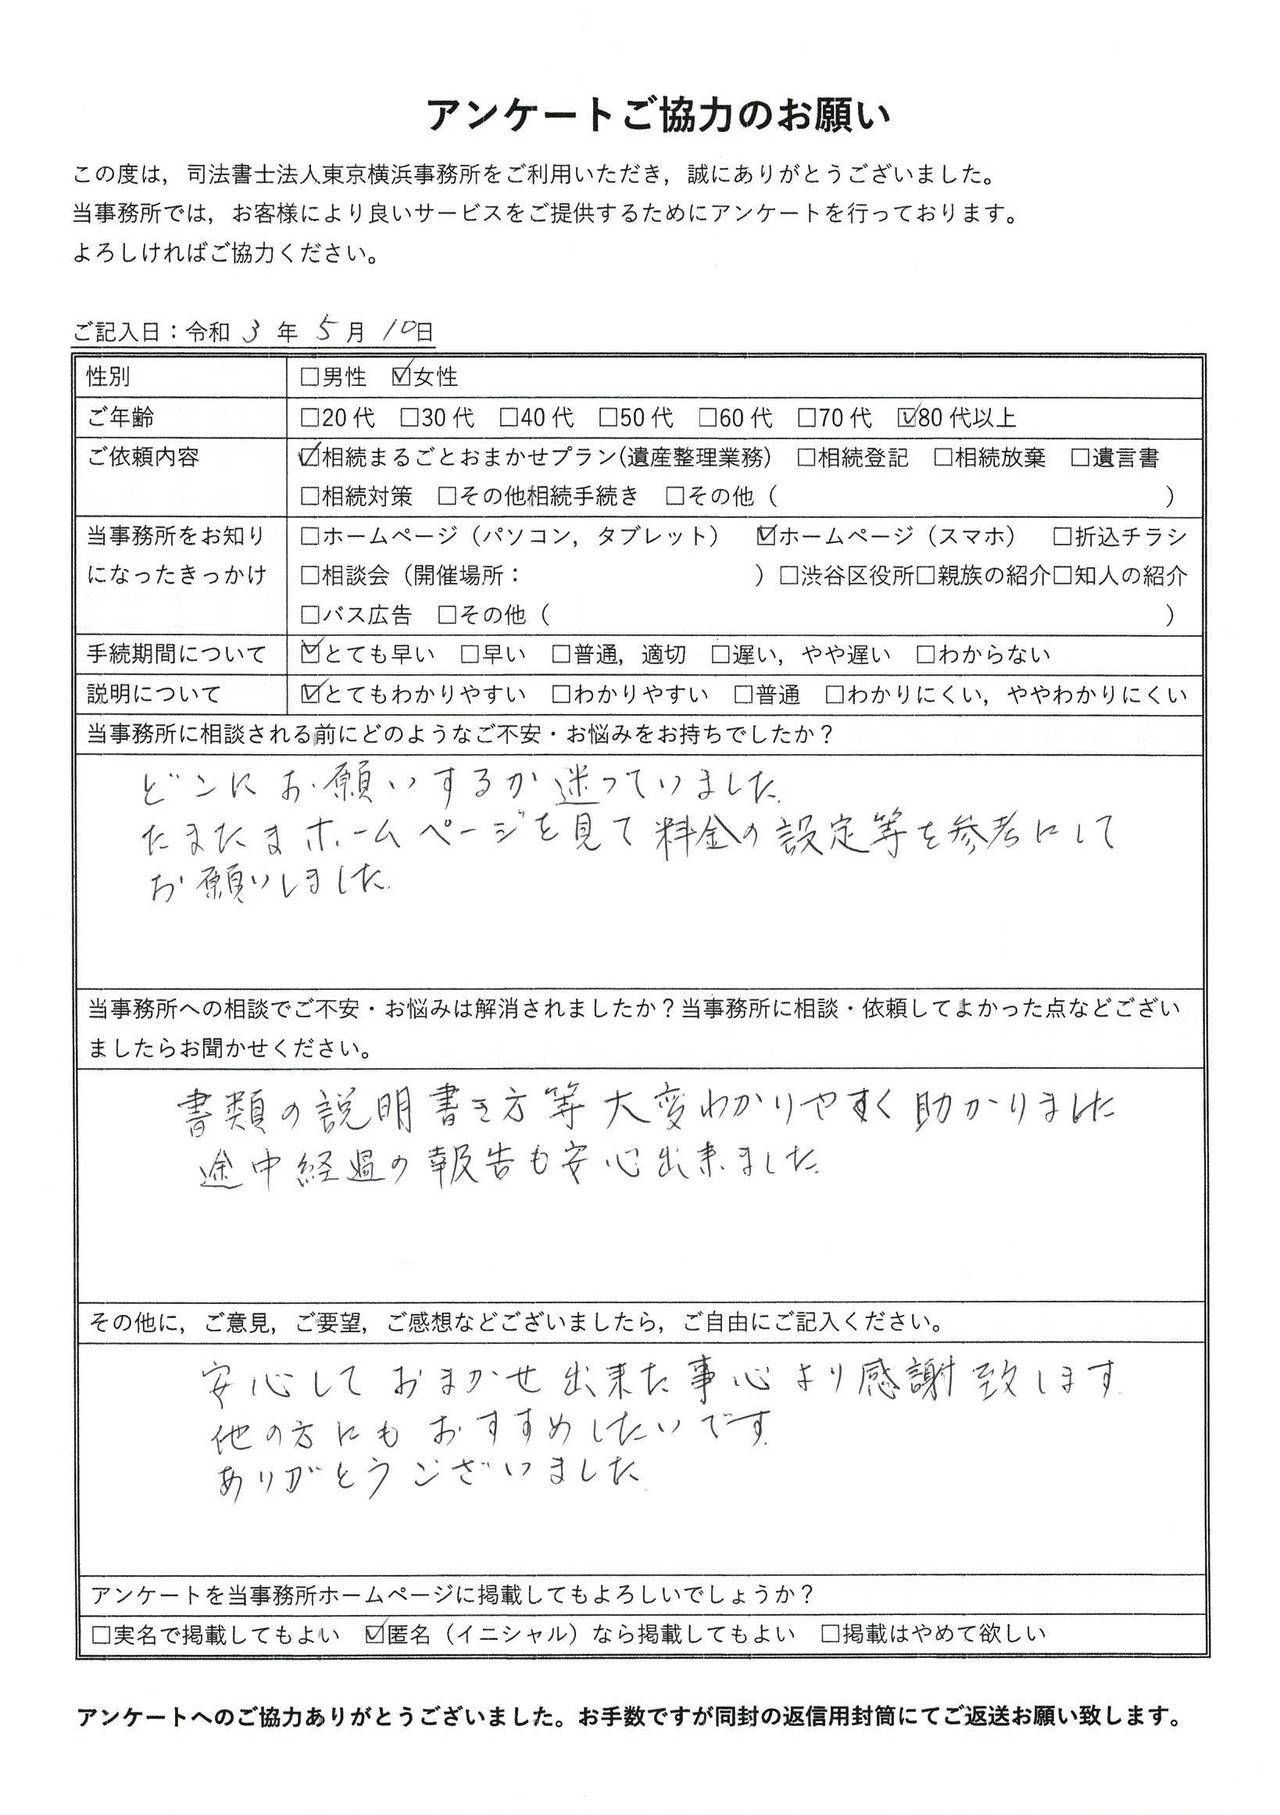 アンケートご協力のお願い
この度は，司法書士法人東京横浜事務所をご利用いただき，誠にありがとうございました。
当事務所では，お客様により良いサービスをご提供するためにアンケートを行っております。
よろしければご協力ください。
ご記入日：令和 3 年 5 月 10日
性別 □男性 ☑女性
ご年齢 □20代 □30代 □40代 □50代 □60代 □70代 ☑80代以上
ご依頼内容 ☑相続まるごとおまかせプラン(遺産整理業務) □相続登記 □相続放棄 □遺言書
□相続対策 □その他相続手続き □その他（ ）
当事務所をお知り □ホームページ（パソコン，タブレット） ☑ホームページ（スマホ） □折込チラシ
になったきっかけ □相談会（開催場所： ）□渋谷区役所□親族の紹介□知人の紹介
□バス広告 □その他（ ）
手続期間について ☑とても早い □早い □普通，適切 □遅い，やや遅い □わからない
説明について ☑とてもわかりやすい □わかりやすい □普通 □わかりにくい，ややわかりにくい
当事務所に相談される前にどのようなご不安・お悩みをお持ちでしたか？
どこにお願いするか迷っていました
たまたまホームページを見て料金の設定等を参考にして
お願いしました
当事務所への相談でご不安・お悩みは解消されましたか？当事務所に相談・依頼してよかった点などござい
ましたらお聞かせください。
書類の説明書き方等大変わかりやすく助かりました
途中経過の報告も安心出来ました
その他に，ご意見，ご要望，ご感想などございましたら，ご自由にご記入ください。
安心しておまかせ出来た事心より感謝致します
他の方にもおすすめしたいです
ありがとうございました
アンケートを当事務所ホームページに掲載してもよろしいでしょうか？
□実名で掲載してもよい ☑匿名（イニシャル）なら掲載してもよい □掲載はやめて欲しい
アンケートへのご協力ありがとうございました。お手数ですが同封の返信用封筒にてご返送お願い致します。